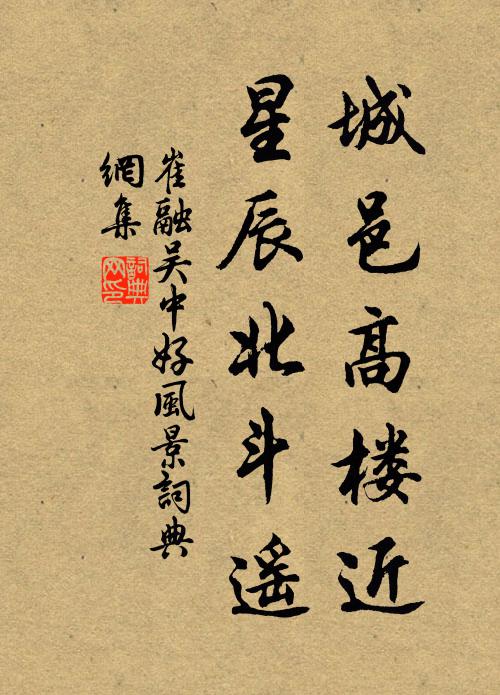 城邑高楼近
星辰北斗遥
崔融吴中好風景詞典
網集
詞典
网印